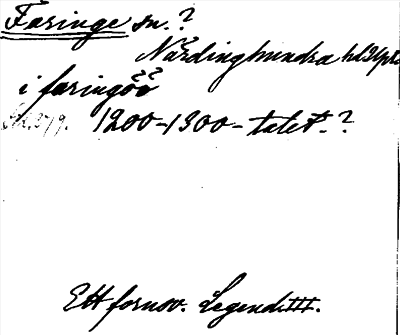 Faringe sn.?
Närdinghundra hd Upl.
i faringöö
1200-1300-talet.?
Ett fornsv. Legend. III.